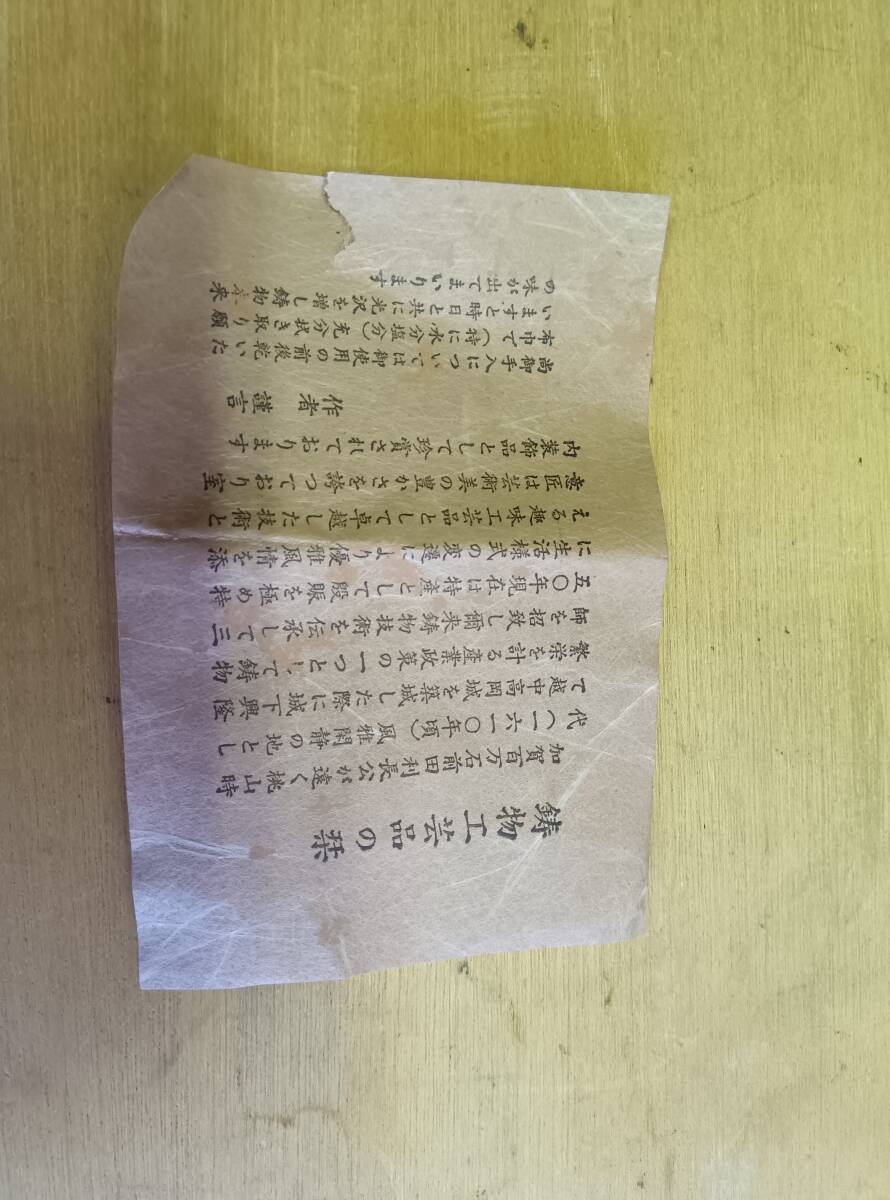 鋳物工芸品の栞
加賀百万石前田利長公が遠く桃山時
代(一六一〇年頃)風雅閑静の地とし
て越中高岡城を築城した際に城下興隆
繁栄を計る産業政策の一つとして鋳物
師を招致し爾来鋳物技術を伝承して三
五〇年現在は特産として殷賑を極め特
に生活様式の変遷により優雅風情を添
える趣味工芸品として卓越した技術と
意匠は芸術美の豊かさを誇つており室
内装飾品として珍賞されております
作者 謹言
尚御手入については御使用の前後乾いた
布巾で(特に水分塩分)充分拭き取り願
いますと時日と共に光沢を増し鋳物本来
の味が出てまいります